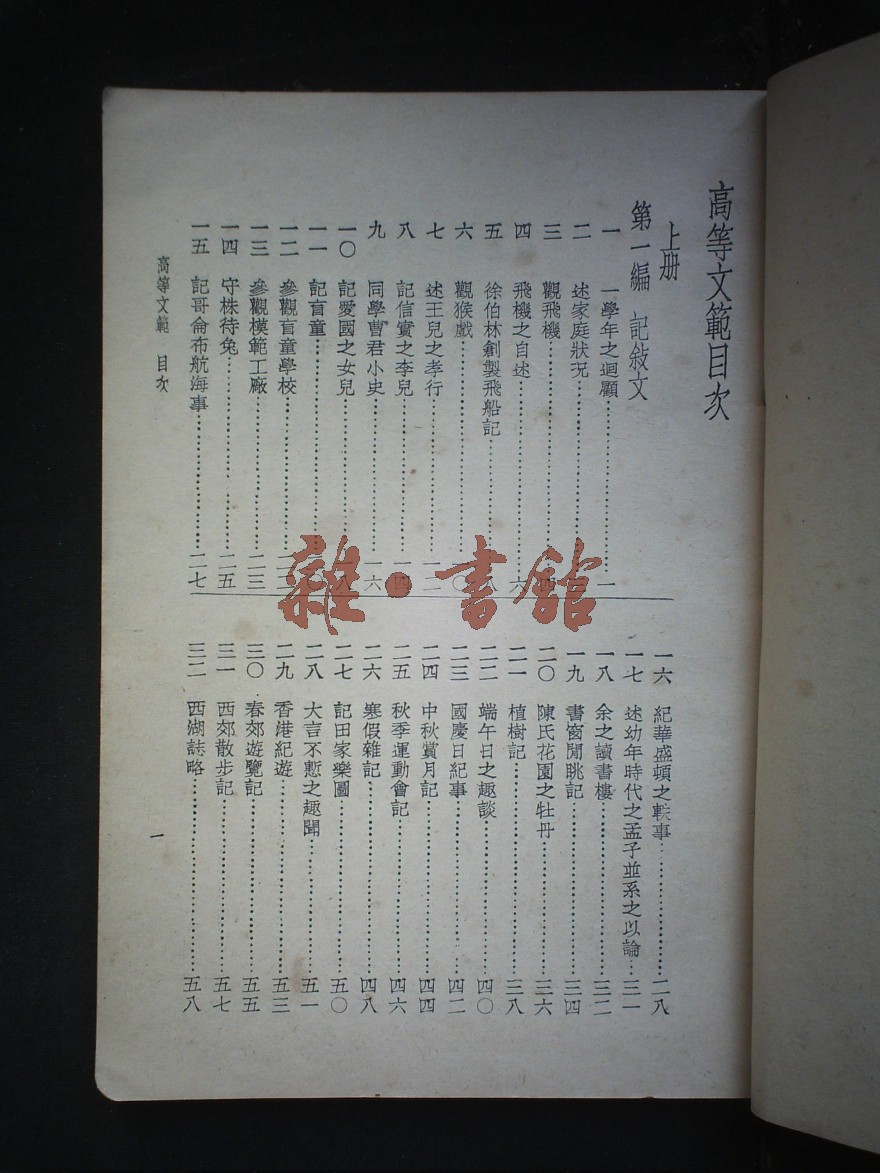 高等文範目次
上册
第一編 記敍文
一 一學年之迴顧 一
二 述家庭狀況
三 觀飛機 四
四 飛機之自述 六
五 徐伯林創製飛船記 八
六 觀猴戲 一〇
七 述王兒之孝行 一二
八 記信實之李兒 一四
九 同學曹君小史 一六
一〇 記愛國之女兒 一八
一一 記盲童
一二 參觀盲童學校
一三 參觀模範工廠 二三
一四 守株待兔 二五
一五 記哥侖布航海事 二七
一六 紀華盛頓之軼事 二八
一七 述幼年時代之孟子並系之以論 三一
一八 余之讀書樓 三二
一九 書窗閒眺記 三四
二〇 陳氏花園之牡丹 三六
二一 植樹記 三八
二二 端午日之趣談 四〇
二三 國慶日紀事 四二
二四 中秋賞月記 四四
二五 秋季運動會記 四六
二六 寒假雜記 四八
二七 記田家樂圖 五〇
二八 大言不慙之趣聞 五一
二九 香港紀遊 五三
三〇 春郊遊覽記 五五
三一 西郊散步記 五七
三二 西湖誌略 五八
高等文範 目次
一
雜·書館